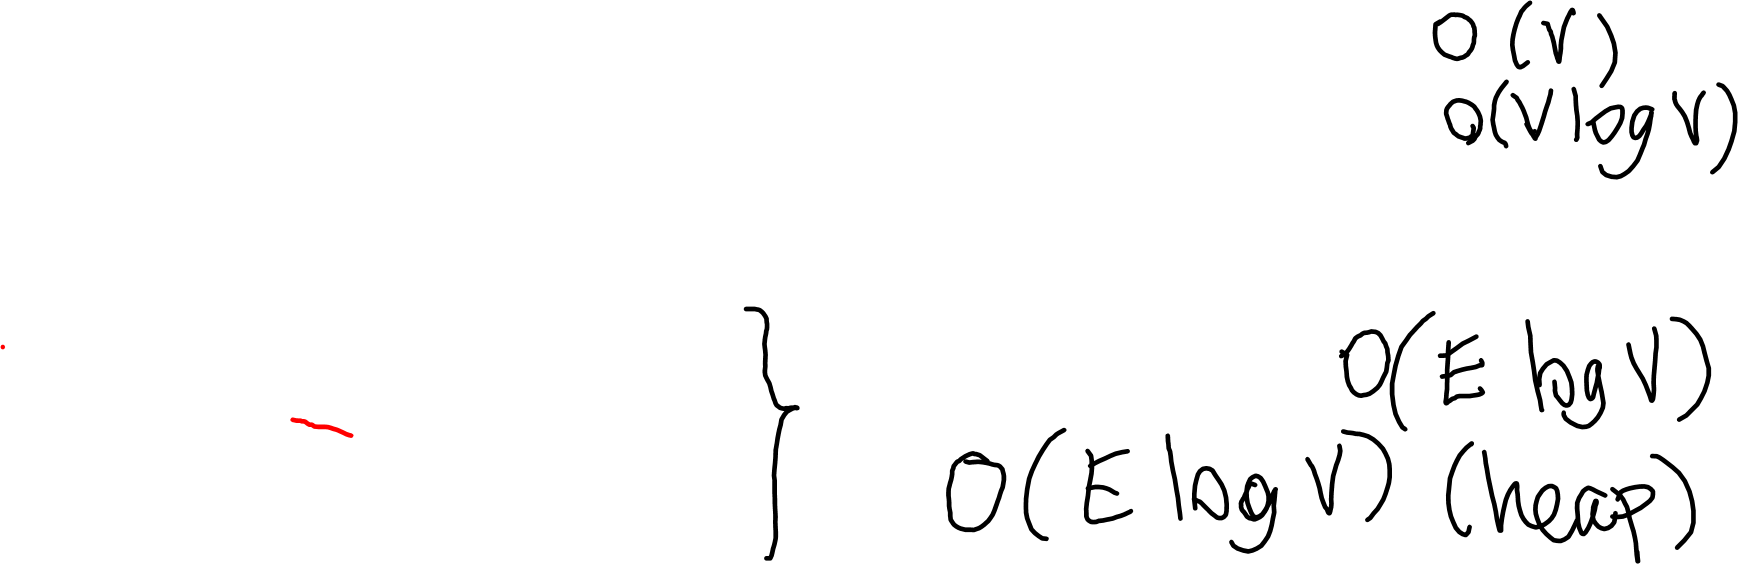 O(V)
O(V log V)
O(E log V)
O(E log V) (heap)